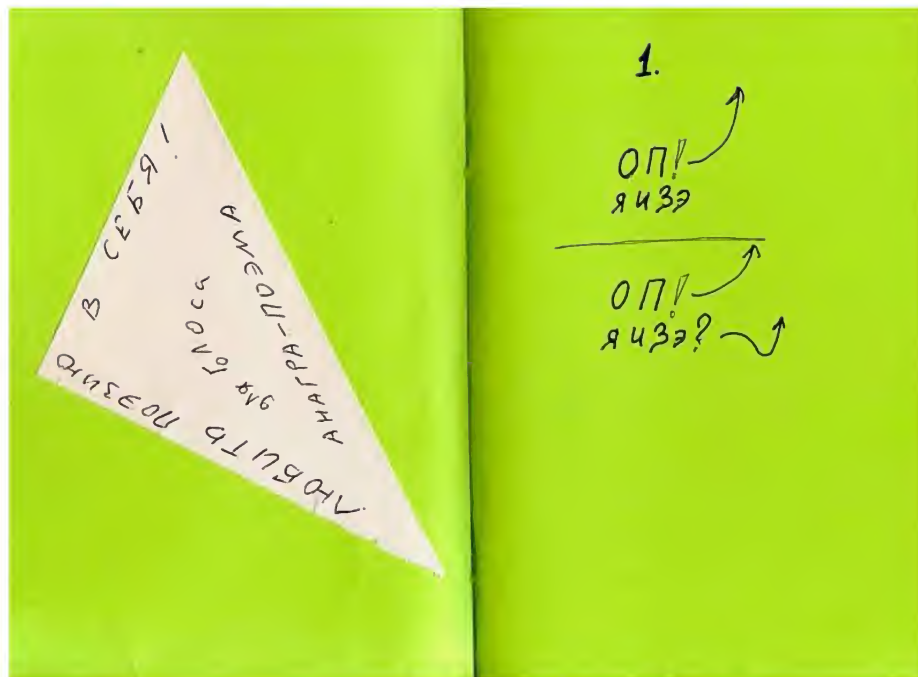 ЛЮБИТЬ ПОЭЗИЮ
В СЕБЯ!
АНАГРА-ПОЭМА
для голоса
1.
ОП!
ЯИЗЭ
ОП!
ЯИЗЭ?